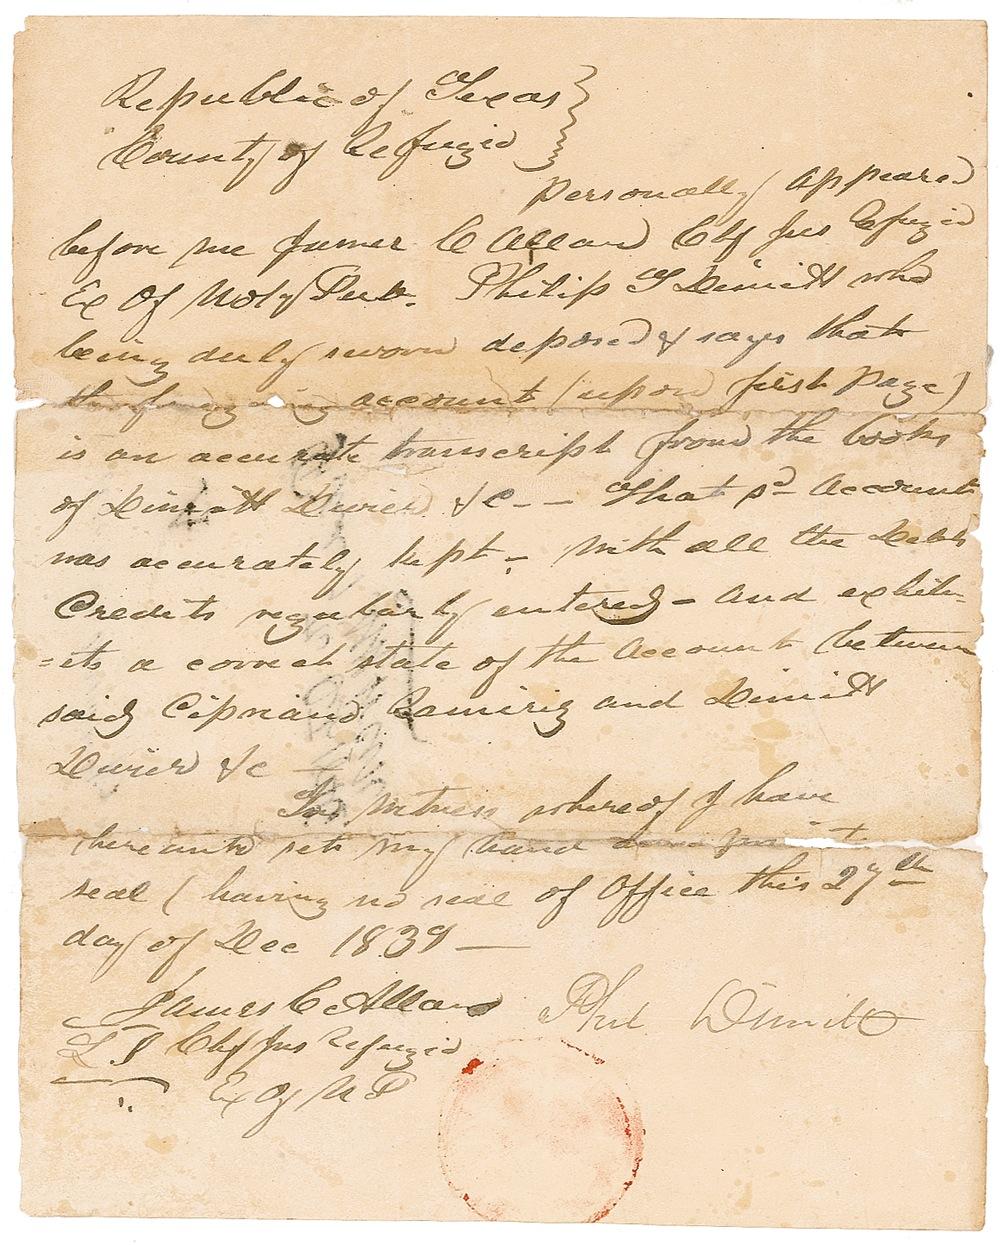 Republic of Texas }
County of Refugio }
Personally appeared
before me James C Allan Chf Jus Refugio
Ex Of Noty Pub. Philip Dimitt who
being duly sworn deposed & says that
the foregoing account (upon first Page)
is an accurate transcript from the books
of Dimitt &c - That sd Account
was accurately kept - With all the Debts
Credits regularly entered - and exhib-
=its a correct state of the Account between
said Cipriano Ramirez and Dimitt
&c
In Witness whereof I have
hereunto set my hand and
seal (having no seal of Office this 27th
day of Dec 1839 —
James C Allan Phil Dimitt
L.S Chf Jus Refugio
Ex Of N P